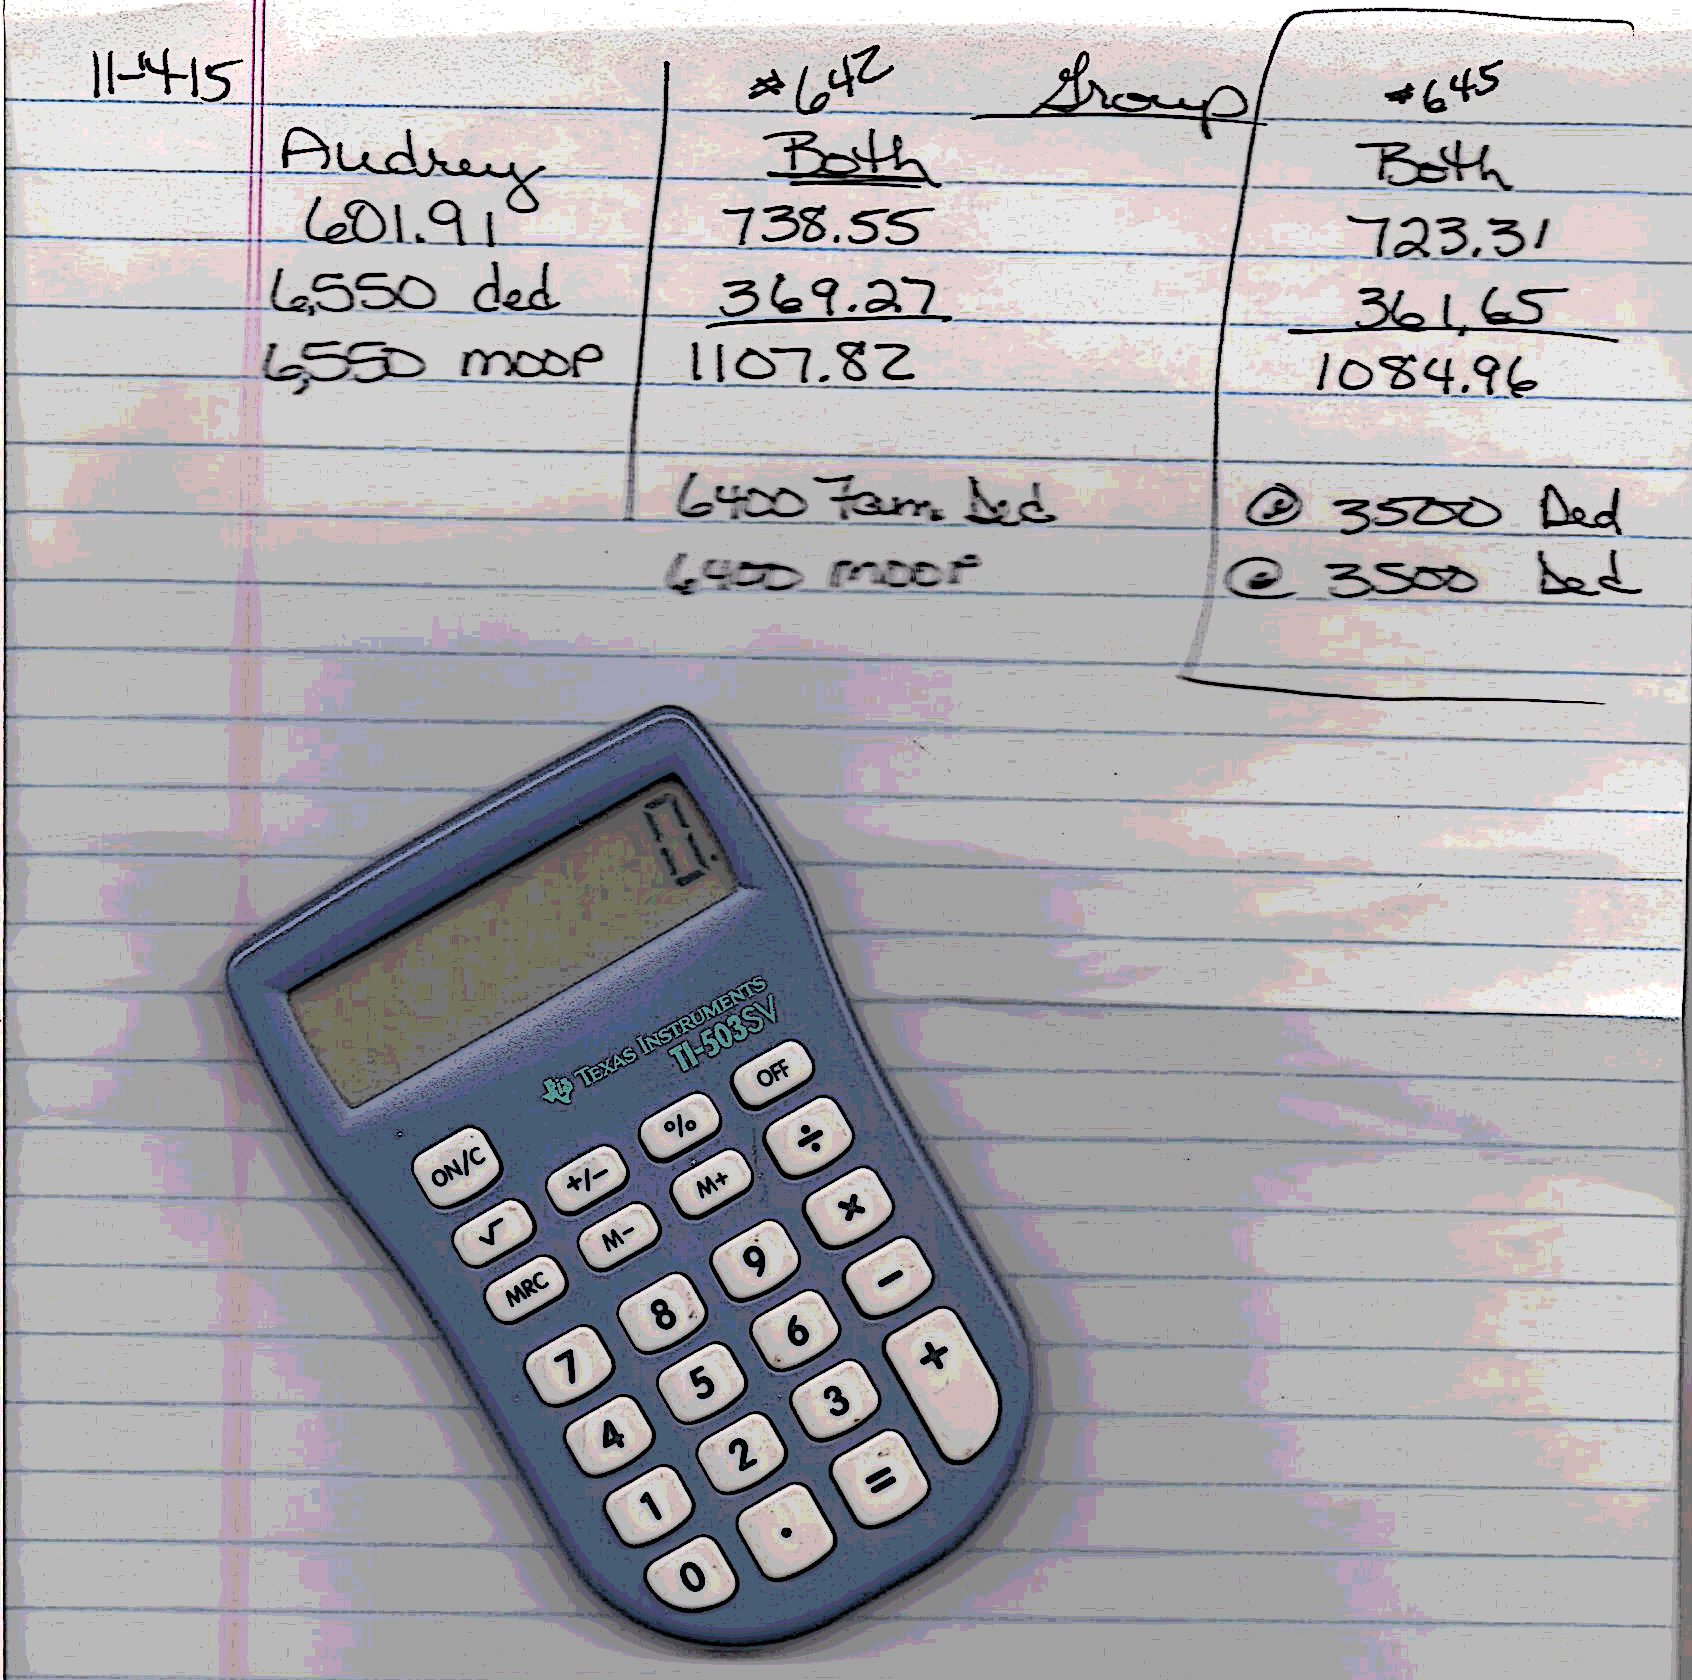 11-4-15
#642 Group #645
Audrey Both Both
601.91 738.55 723.31
6,550 ded 369.27 361.65
6,550 moop 1107.82 1084.96
6400 Fam. Ded @ 3500 Ded
6400 moop @ 3500 Ded
0.
TEXAS INSTRUMENTS
TI-503SV
ON/C +/- % OFF
√ M- M+ ÷
MRC ×
7 8 9 -
4 5 6 +
1 2 3
0 . =